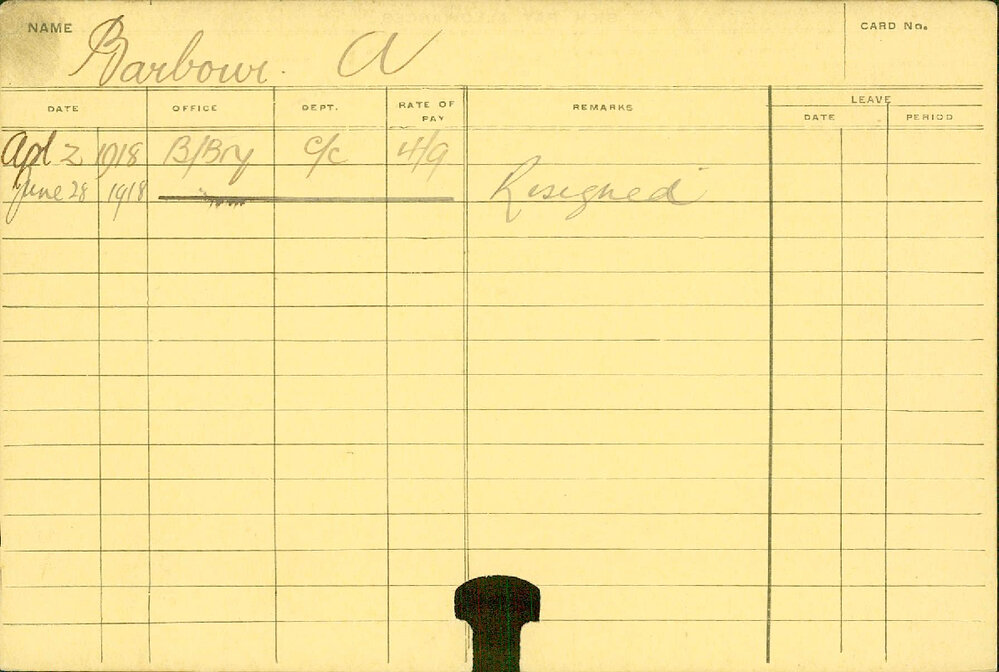 NAME Barbour. A CARD No.
DATE OFFICE DEPT. RATE OF PAY REMARKS LEAVE
DATE PERIOD
Apl 2 1918 B/Bry C/C 4/9
June 28 1918 Resigned